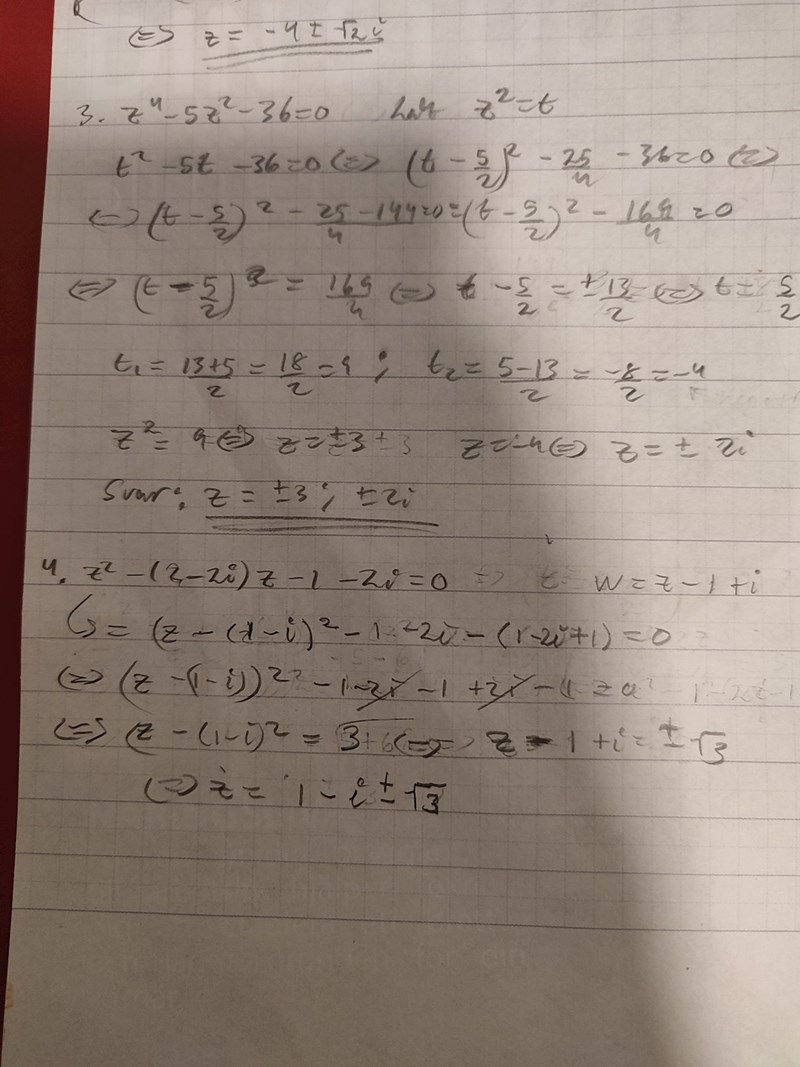 ⇔ z = -4 ± √2i
3. z⁴ - 5z² - 36 = 0 låt z² = t
t² - 5t - 36 = 0 ⇔ (t - 5/2)² - 25/4 - 36 = 0 ⇔
⇔ (t - 5/2)² - 25/4 - 144 = 0 = (t - 5/2)² - 169/4 = 0
⇔ (t - 5/2)² = 169/4 ⇔ t - 5/2 = ± 13/2 ⇔ t = 5/2
t₁ = 13+5/2 = 18/2 = 9 ; t₂ = 5-13/2 = -8/2 = -4
z² = 9 ⇔ z = ±3 ±3 z = -4 ⇔ z = ± 2i
Svar: z = ±3 ; ±2i
4. z² - (2 - 2i)z - 1 - 2i = 0 ⇒ w = z - 1 + i
= (z - (1 - i)² - 1 - 2i - (1 - 2i + 1) = 0
⇔ (z - (1 - i))² - 1 - 2i - 1 + 2i - 1
⇔ (z - (1 - i)² = 3 ⇔ z - 1 + i = ± √3
⇔ z = 1 - i ± √3